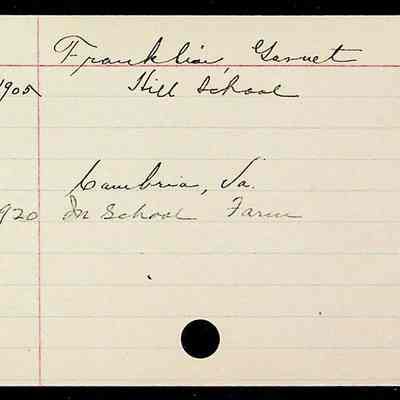 Franklin, Garnet
1905 Hill School
Cambria, Va.
920 In School Farm